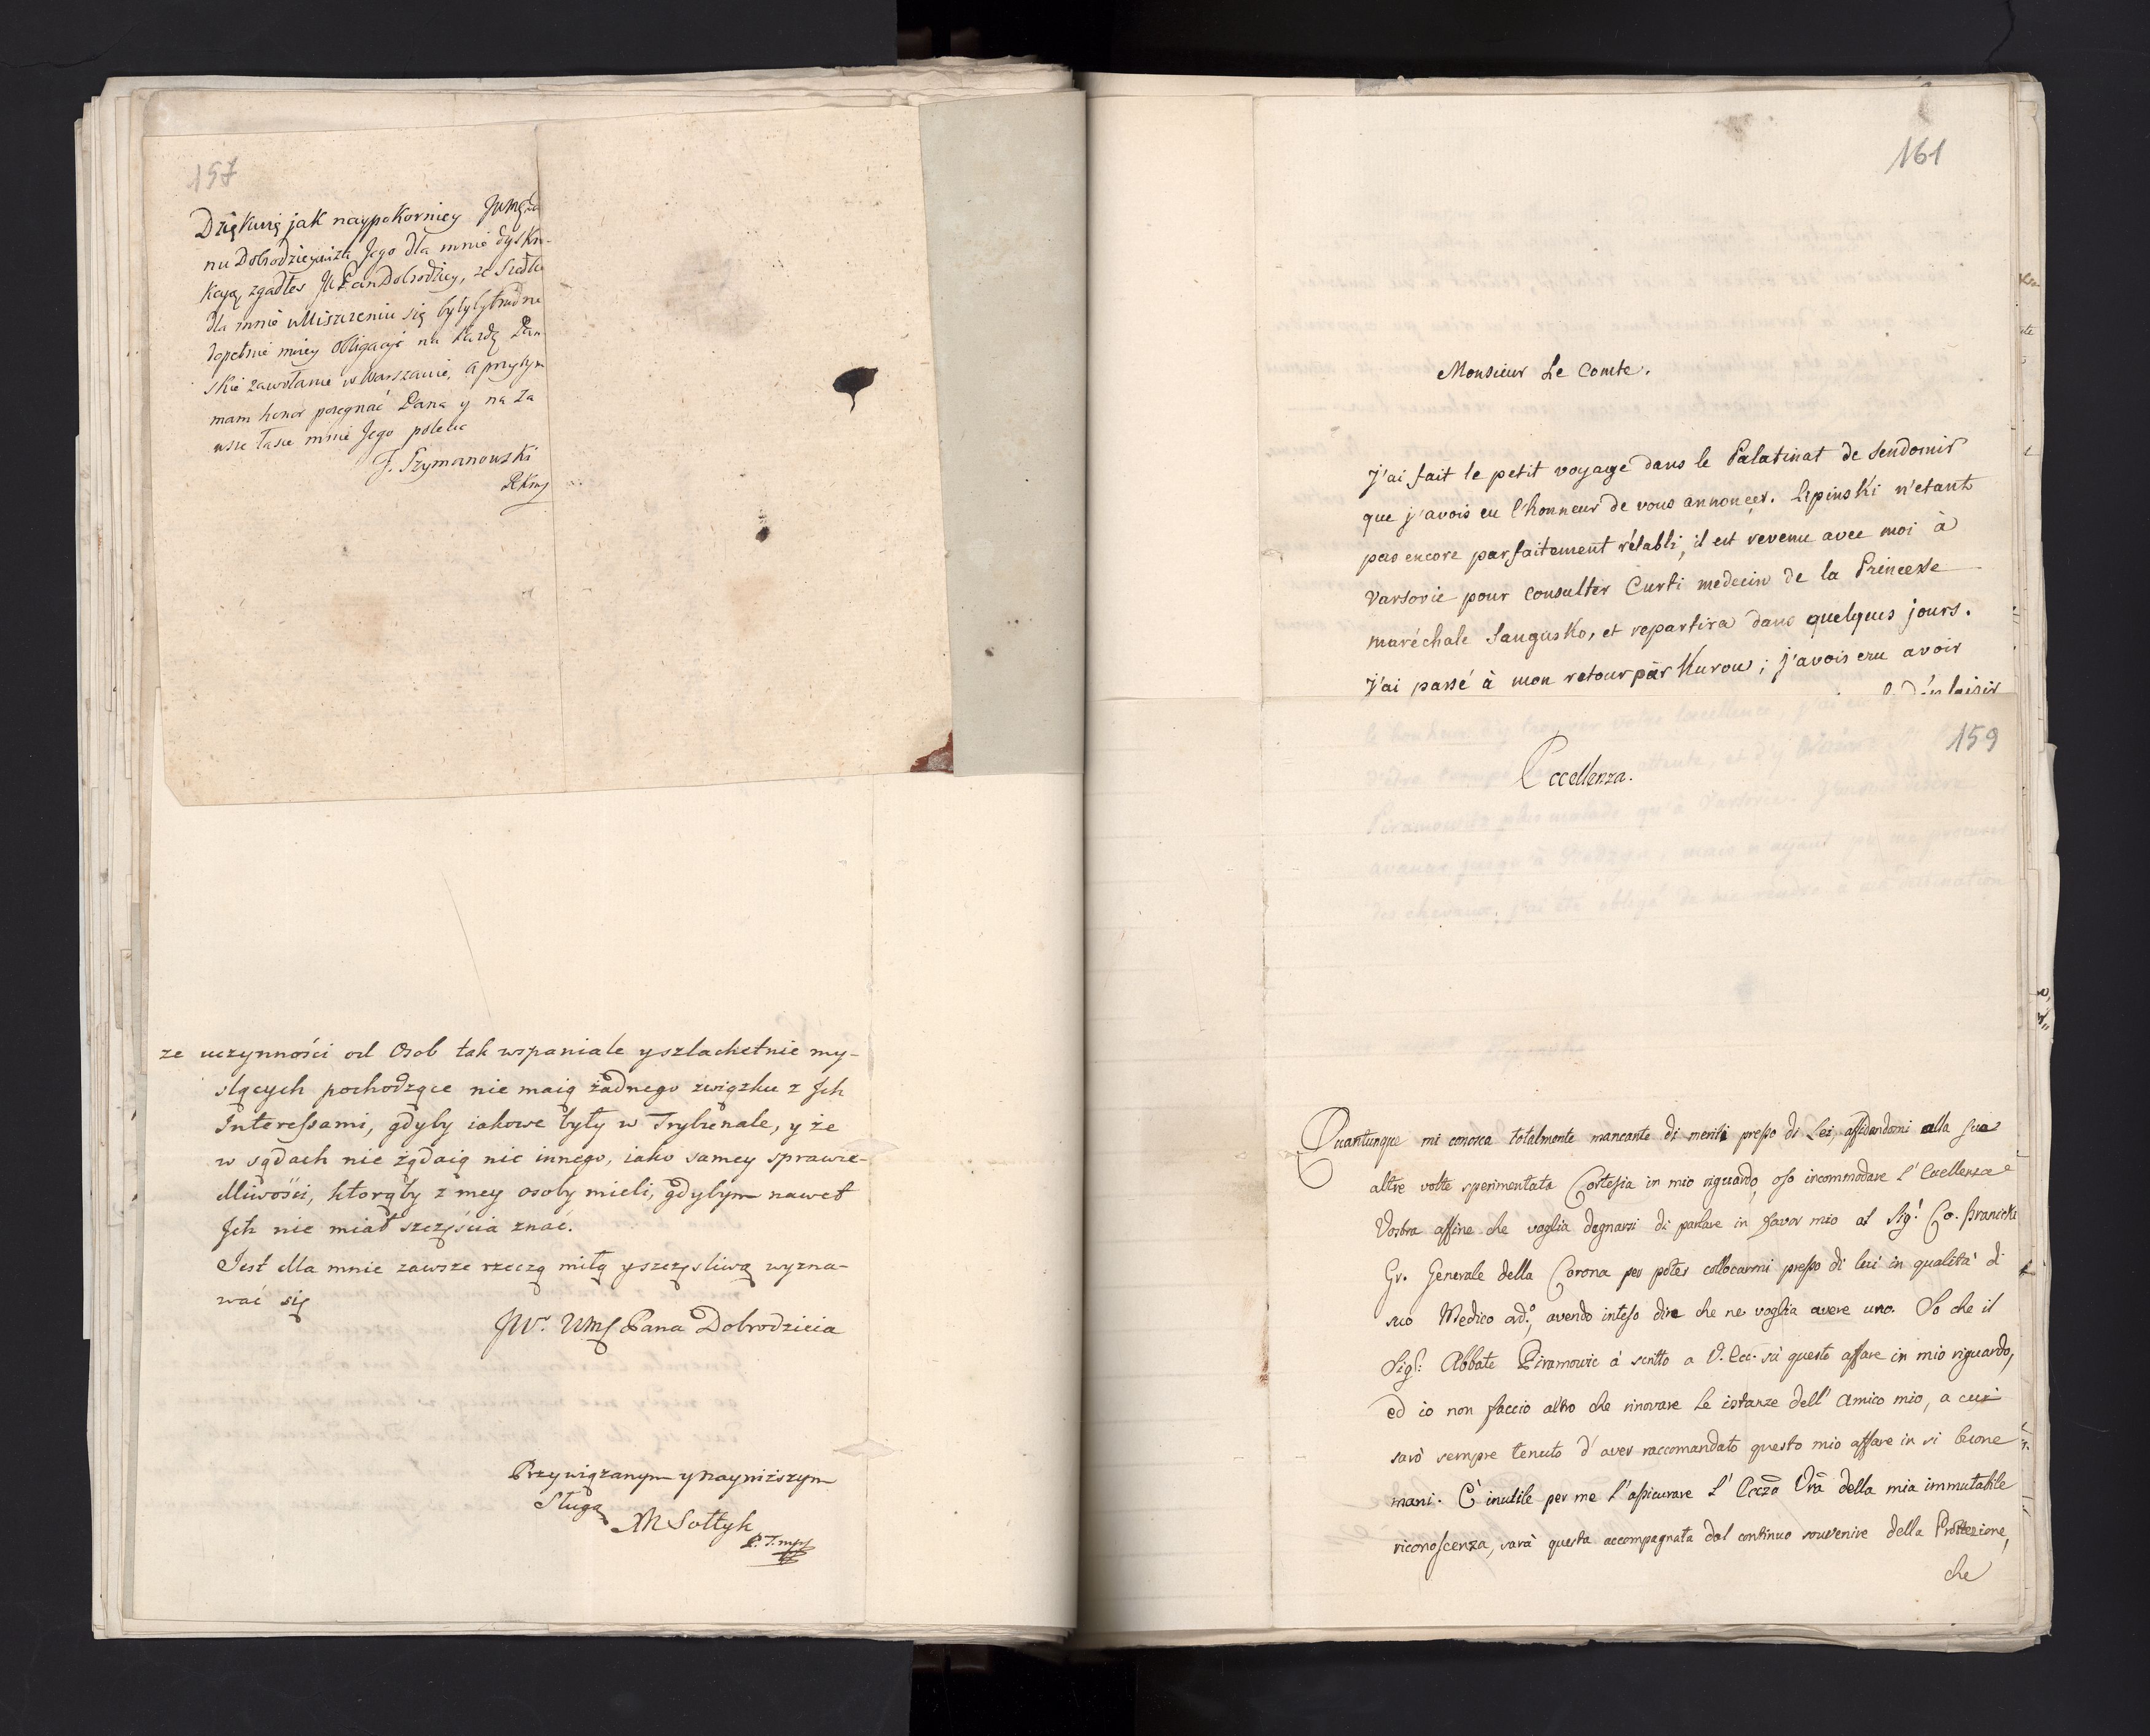 157
Dziękuię jak naypokorniey
nu Dobrodzieywizta Jego dla mnie dyskre-
kaią zgadłeś JW Pan Dobrodziey, że
dla mnie w Uiszczeniu się byłyby trudne
dopełnić moiey obligacyi na każde Pań-
skie zawołanie w Warszawie, a przytym
mam honor pożegnać Pana y na za
wsze łasce mnie Jego poleca
J. Szymanowski
że uczynności od Osob tak wspaniale y szlachetnie my-
slących pochodzące nie maią żadnego związku z Jch
Interessami, gdyby iakowe były w Trybunale, y że
w sądach nie żądaią nic innego, iako samey sprawie-
dliwości, ktorąby z mey osoby mieli, gdybym nawet
Jch nie miał szczęścia znać.
Jest dla mnie zawsze rzeczą miłą y szczęsliwą wyzna-
wać się
JW. WMć Pana Dobrodzieia
Przywiązanym y naynizszym
Sługą
M Sołtyk
161
Monsieur Le Comte.
J'ai fait le petit voyage dans le Palatinat de Sendomir
que j'avois eu l'honneur de vous annoncer. Lipinski n'etant
pas encore parfaitement rétabli, il est revenu avec moi à
Varsovie pour consulter Curti medecin de la Princesse
maréchale Sangusko, et repartira dans quelques jours.
J'ai passé à mon retour par Kurow; j'avois cru avoir
159
Eccellenza.
Quantunque mi conosca totalmente mancante di meriti presso di Lei, affidandomi alla sua
altre volte sperimentata Cortesia in mio riguardo, oso incommodare l'Eccellenza
Vostra affine che voglia degnarsi di parlare in favor mio al Sig.r Co. Branicki
Gr. Generale della Corona per poter collocarmi presso di lui in qualità di
suo Medico ord.o, avendo inteso dire che ne voglia avere uno. So che il
Sig.r Abbate Piramowic à scritto a V. Ecc. sù questo affare in mio riguardo,
ed io non faccio altro che rinovare le istanze dell'Amico mio, a cui
sarò sempre tenuto d'aver raccomandato questo mio affare in si buone
mani. È inutile per me l'assicurare l'Eccza Vra della mia immutabile
riconoscenza, sarà questa accompagnata dal continuo souvenire della Protezione,
che